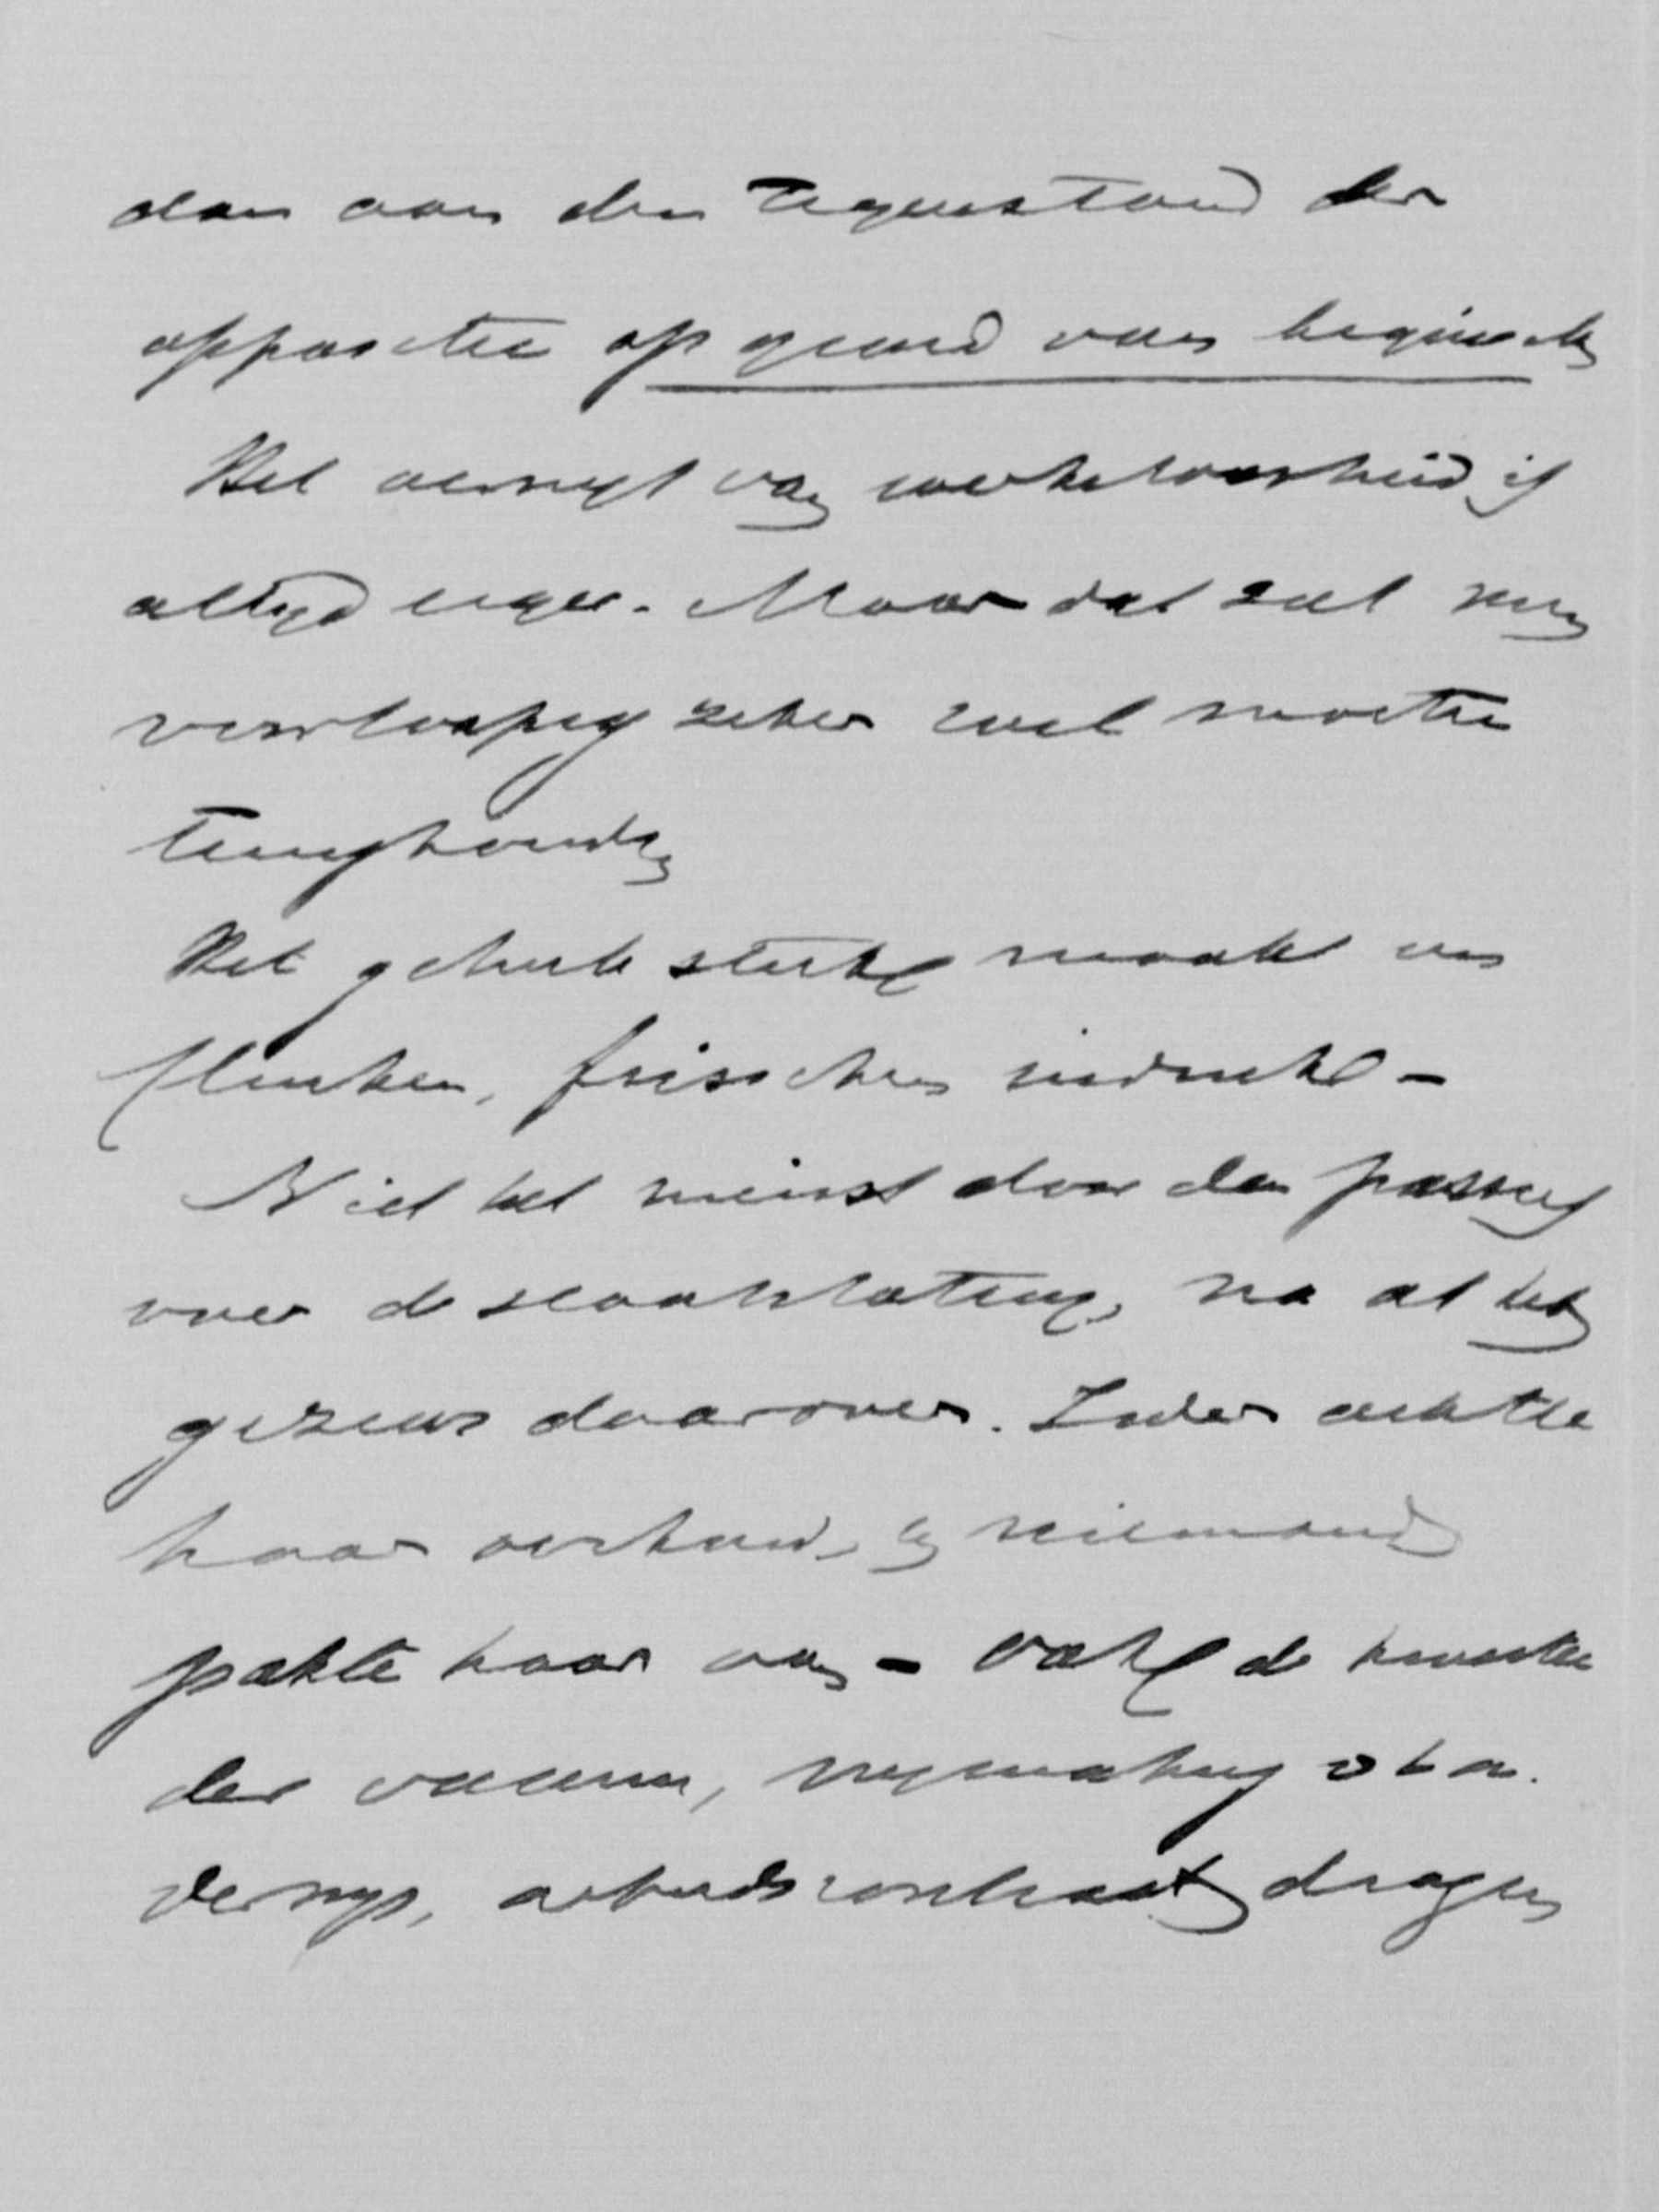 dan aan den tegenstand der
oppositie op grond van beginselen
Het verwyt van werkeloosheid is
altyd erger. Maar dat zal men
voorloopig zeker wel moeten
terughouden
Het geheele stuk maakt een
flinken, frisschen indruk -
Niet het minst door den passus
over de staaksloting, na al het
gezeur daarover. Ieder achtte
haar en niemand
pakte haar aan - ook de kwestie
der vrouwen,
verzp, arbeidscontract dragen